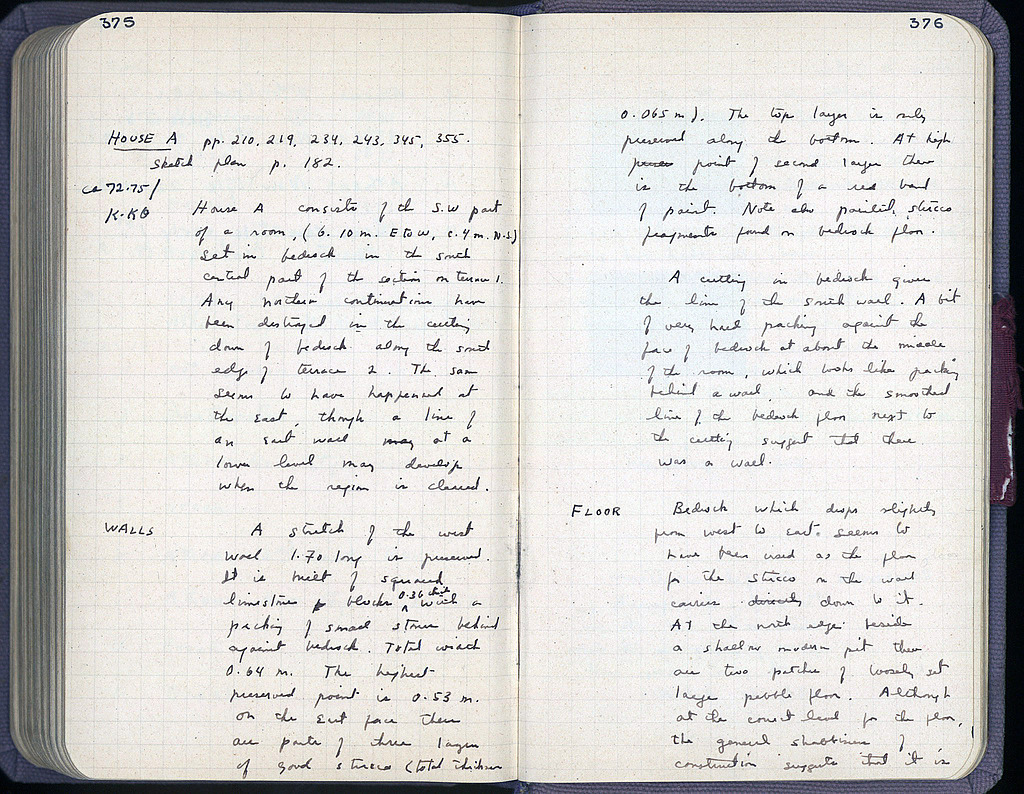 375
HOUSE A pp. 210, 219, 234, 243, 345, 355.
sketch plan p. 182.
ca 72.75/
K-KΘ
House A consists of the S.W part
of a room, (6.10 m. E to W, c. 4 m. N.S.)
set in bedrock in the south
central part of the section on terrace 1.
Any northern continuation have
been destroyed in the cutting
down of bedrock along the south
edge of terrace 2. The same
seems to have happened at
the East, though a line of
an east wall may at a
lower level may develop
when the region is cleared.
WALLS A stretch of the west
wall 1.70 long is preserved.
It is built of squared
limestone blocks 0.36 thick with a
packing of small stones behind
against bedrock. Total width
0.64 m. The highest
preserved point is 0.53 m.
on the East face there
are parts of three layers
of good stucco (total thickness
376
0.065 m). The top layer is only
preserved along the bottom. At high
point of second layer there
is the bottom of a red band
of paint. Note also painted stucco
fragments found on bedrock floor.
A cutting in bedrock gives
the line of the south wall. A bit
of very hard packing against the
face of bedrock at about the middle
of the room, which looks like packing
behind a wall, and the smoothed
line of the bedrock floor next to
the cutting suggest that there
was a wall.
FLOOR Bedrock which drops slightly
from west to east seems to
have been used as the floor
for the stucco on the wall
carries directly down to it.
At the north edge beside
a shallow modern pit there
are two patches of loosely set
large pebble floor. Although
at the correct level for the floor,
the general shabbiness of
construction suggests that it is